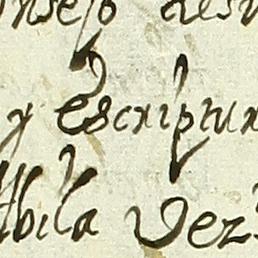 nsejo des
y escriptur
bila Vez